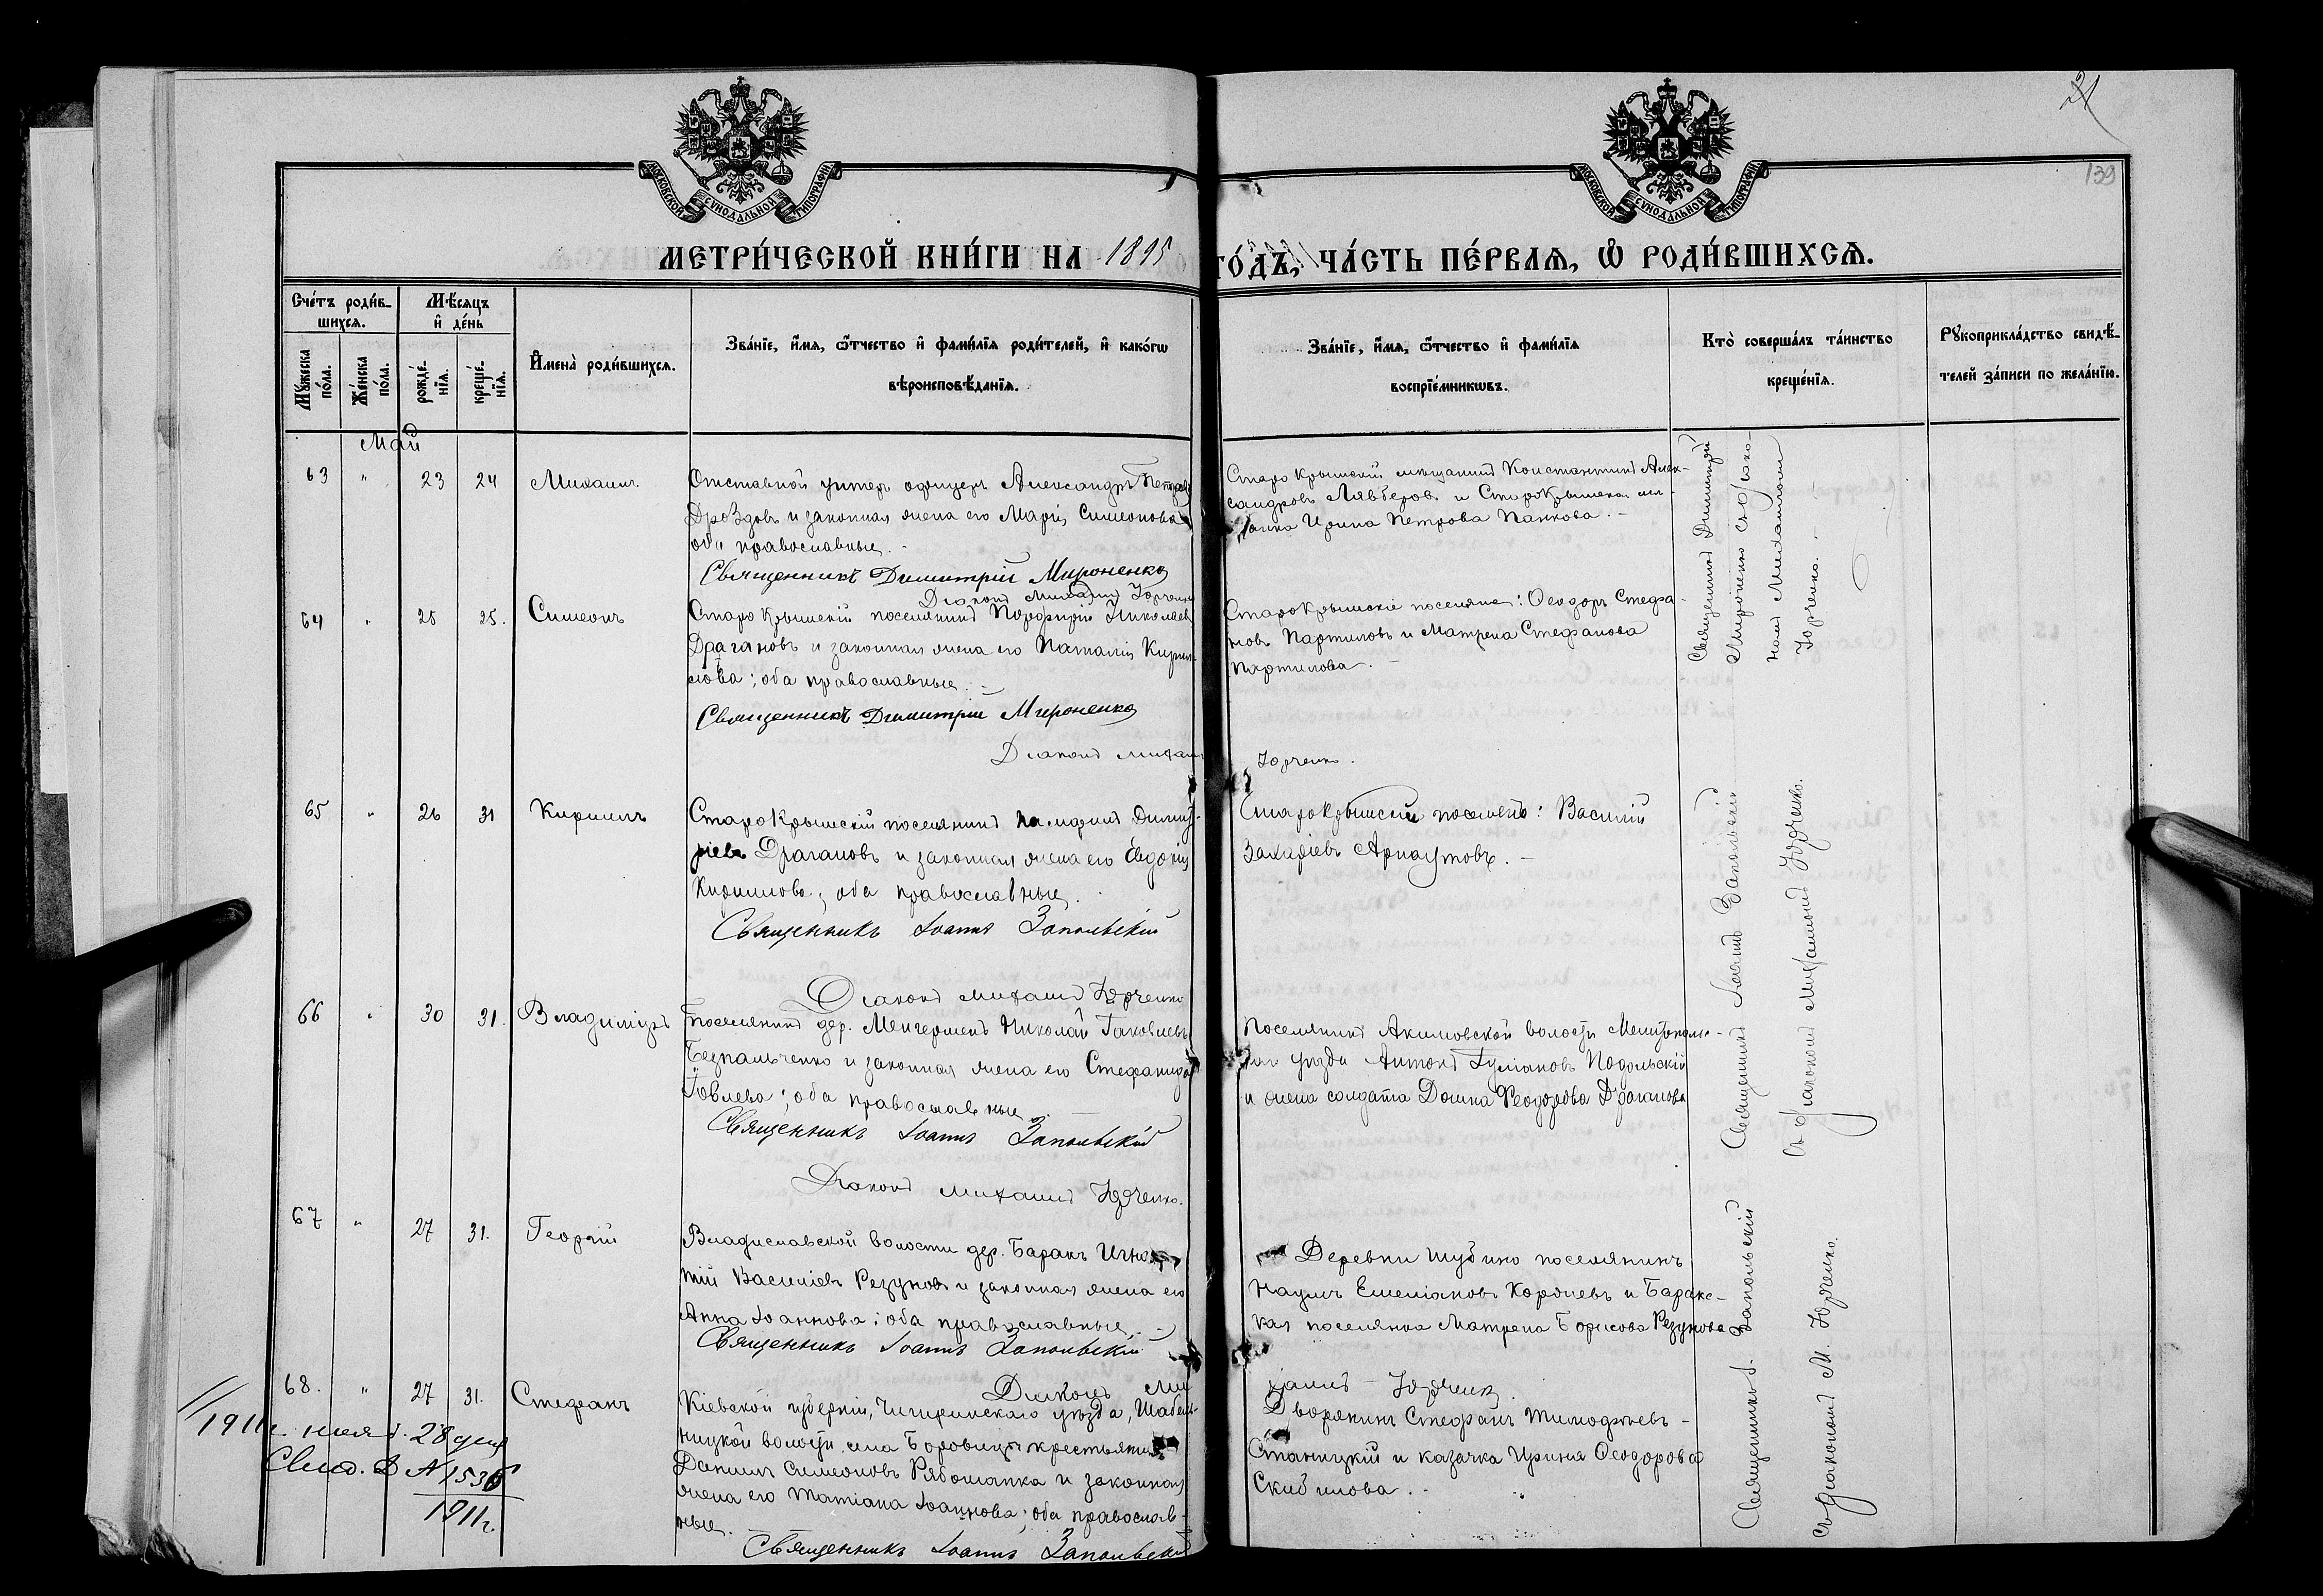 21
139
МОСКОВСКОЙ СУНОДАЛЬНОЙ ТИПОГРАФІИ
МОСКОВСКОЙ СУНОДАЛЬНОЙ ТИПОГРАФІИ
МЕТРИ́ЧЕСКОЙ КНИ́ГИ НА 1895 ГО́ДЪ, ЧА́СТЬ ПЕ́РВАѦ, Ѡ҆ РОДИ́ВШИХСѦ.
Сче́тъ роди́в-
шихсѧ.
Мꙋ́жеска по́ла.
Же́нска по́ла.
Мѣ́сѧцъ
и҆ де́нь
рожде́-
нїѧ.
креще́-
нїѧ.
И҆мена̀ роди́вшихсѧ.
Зва́нїе, и҆́мѧ, ѻ҆́тчество и҆ фами́лїѧ роди́телей, и҆ како́гѡ
вѣроисповѣ́данїѧ.
Зва́нїе, и҆́мѧ, ѻ҆́тчество и҆ фами́лїѧ
воспрїе́мникѡвъ.
Кто̀ соверша́лъ та́инство
креще́нїѧ.
Рꙋкоприкла́дство свидѣ́-
телей за́писи по жела́нїю.
Май
63 " 23 24 Михаилъ
Отставной унтеръ офицеръ Александръ Петровъ
Дроздовъ и законная жена его Марія Симеонова
оба православные.
Священникъ Димитрій Мироненко
Діаконъ Михаилъ Юрченко
Старо Крымскій мѣщанинъ Константинъ Алек-
сандровъ и СтароКрымская
Ирина Петрова Панкова. –
Священникъ Димитрій
Мироненко съ діако-
номъ Михаиломъ
Юрченко. –
64 " 25 25. Симеонъ
Старо Крымскій поселянинъ Порфирій Николаевъ
Драгановъ и законная жена его Наталія Кирил-
лова; оба православные. –
Священникъ Димитрій Мироненко
Діаконъ Михаилъ Юрченко.
СтароКрымскіе поселяне: Ѳеодоръ Стефа-
новъ Партиловъ и Матрена Стефанова
Партилова. –
65 " 26 31 Кириллъ
СтароКрымскій поселянинъ Димит-
ріевъ Драгановъ и законная жена его Евдокія
Кириллова; оба православные.
Священникъ Іоаннъ Запольскій
Діаконъ Михаилъ Юрченко
СтароКрымскій поселянинъ: Василій
Захаріевъ Арнаутовъ. –
Священникъ Іоаннъ Запольскій
съ діакономъ Михаиломъ Юрченко.
66 " 30 31. Владиміръ
Поселянинъ дер. Николай Іаковлевъ
Безпальченко и законная жена его Стефанида
Іовлева; оба православные. –
Священникъ Іоаннъ Запольскій
Діаконъ Михаилъ Юрченко.
Поселянинъ Акимовской волости Мелитополь-
скаго уѣзда Антонъ Подольскій
и жена солдата Домна Ѳеодорова
67 " 27 31. Георгій
Владиславской волости дер. Баракъ Игна-
тій Василіевъ Резуновъ и законная жена его
Анна Іоаннова; оба православные. –
Священникъ Іоаннъ Запольскій
Діаконъ Михаилъ Юрченко.
Деревни Шубино поселянинъ
Наумъ Емеліановъ и Баракс-
кая поселянка Матрена Борисова Резунова
Священникъ І. Запольскій
съ діакономъ М. Юрченко.
68. " 27 31. Стефанъ
Кіевской губерніи, Чигиринскаго уѣзда, Шабель-
ницкой волости села Боровицы крестьянинъ
Даніилъ Симеоновъ Рябошапка и законная
жена его Татіана Іоаннова; оба православ-
ные. –
Священникъ Іоаннъ Запольскій
Дворянинъ Стефанъ Тимофѣевъ –
Станицкій и казачка Ирина Ѳеодорова
1911 г. нояб. 28 дня
Свид. № 1536
1911 г.